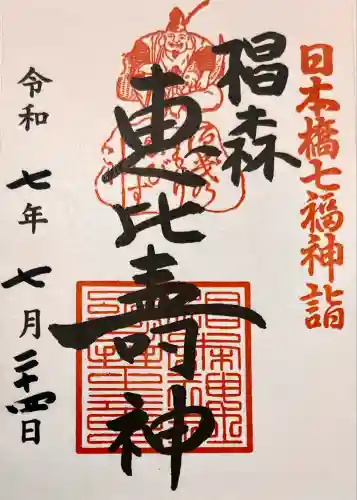 日本橋七福神詣
椙森
恵比壽神
令和七年七月二十四日